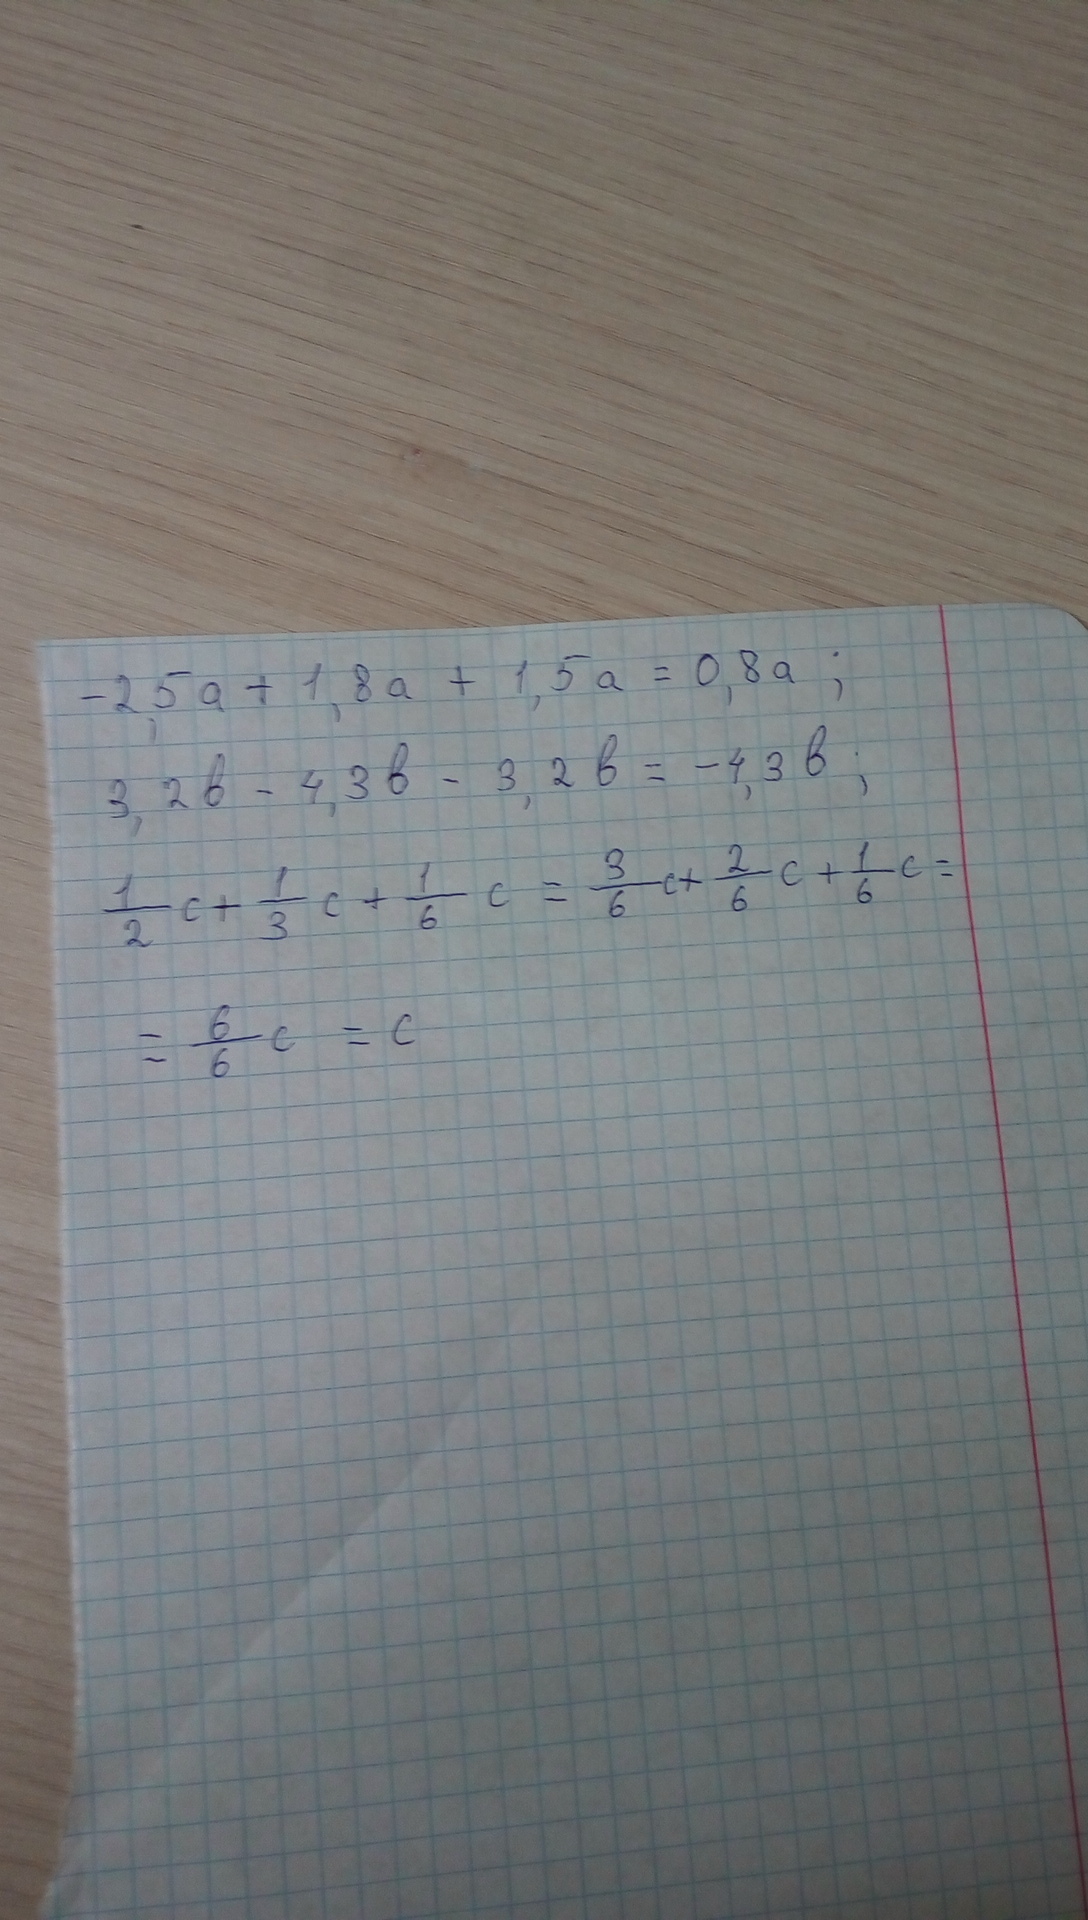 -2,5a + 1,8a + 1,5a = 0,8a ;
3,2в - 4,3в - 3,2в = -4,3в ;
1/2 c + 1/3 c + 1/6 c = 3/6 c + 2/6 c + 1/6 c =
= 6/6 c = c